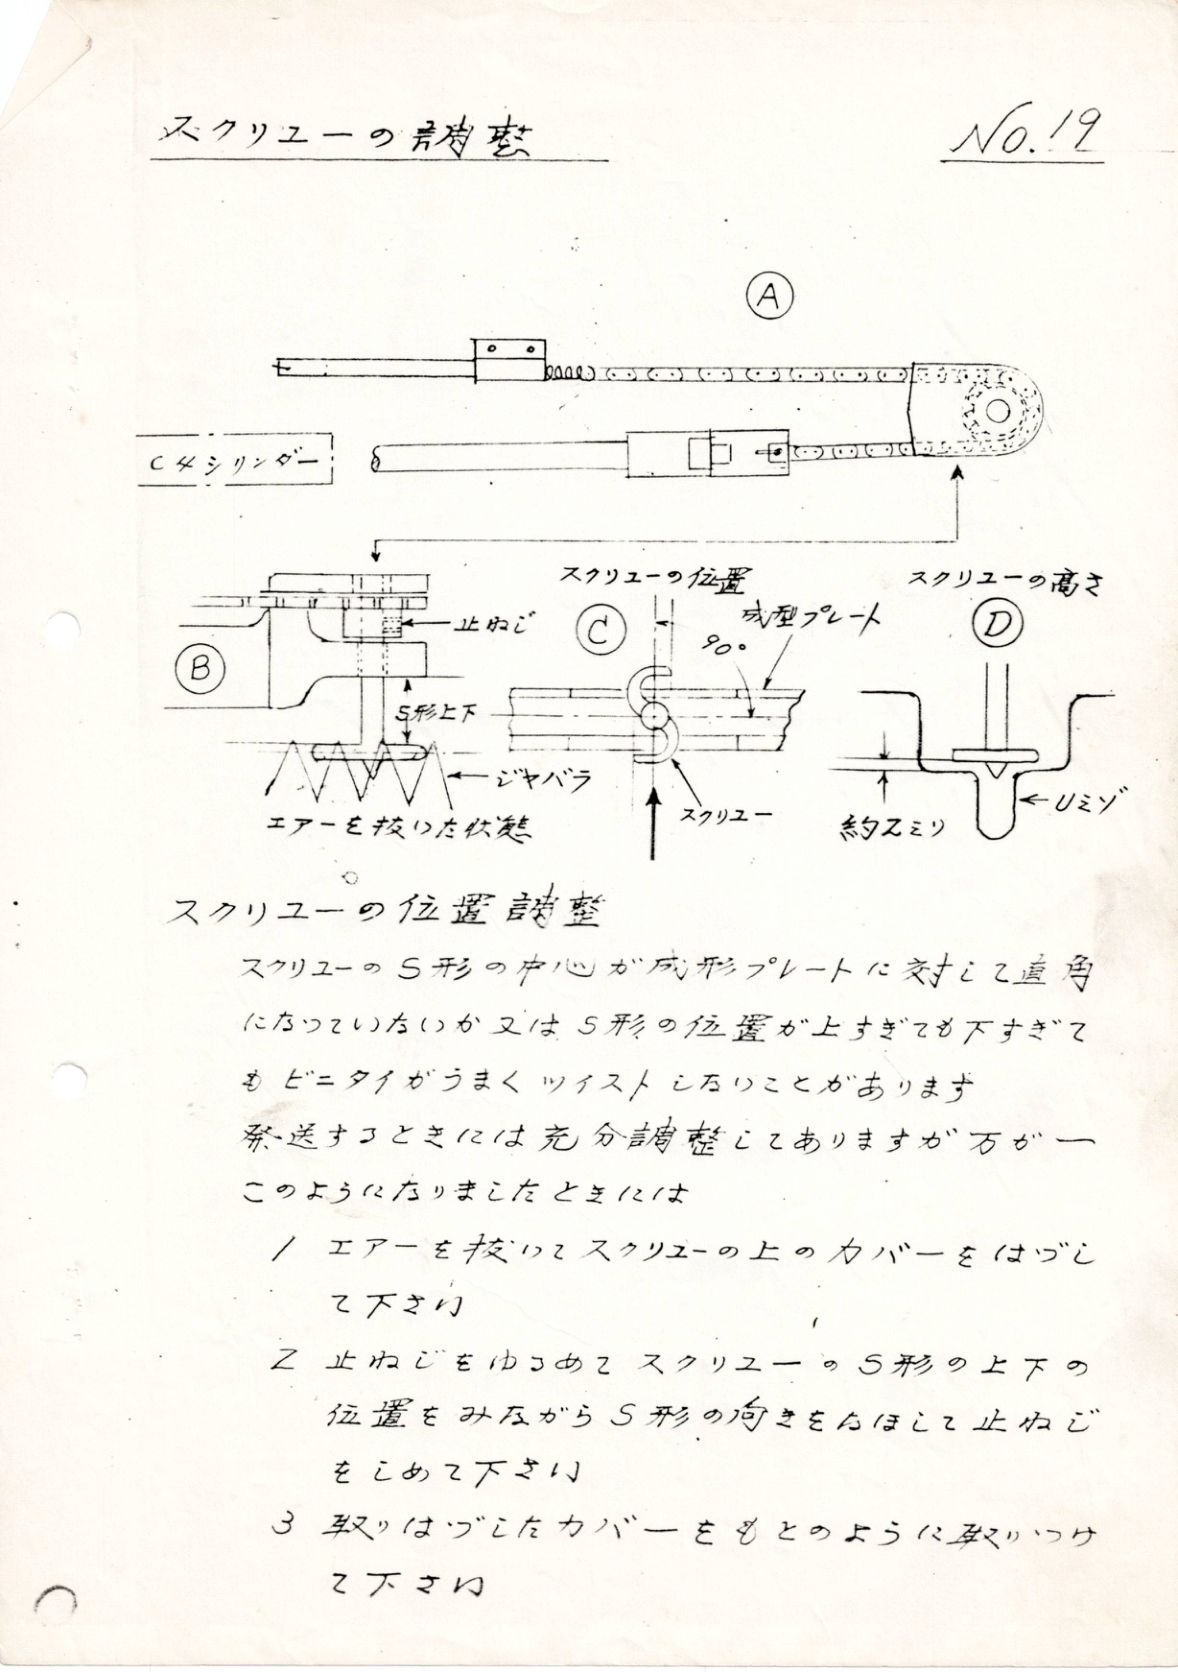 スクリューの調整
No.19
A
C4シリンダー
スクリューの位置
スクリューの高さ
止ねじ
成型プレート
B
C
90°
D
S形上下
ジャバラ
スクリュー
Uミゾ
エアーを抜いた状態
約2ミリ
スクリューの位置調整
スクリューのS形の中心が成形プレートに対して直角
になっていないか又はS形の位置が上すぎても下すぎて
もビニタイがうまくツイストしないことがあります
発送するときには充分調整してありますが万が一
このようになりましたときには
1 エアーを抜いてスクリューの上のカバーをはづし
て下さい
2 止ねじをゆるめてスクリューのS形の上下の
位置をみながらS形の向きをなほして止ねじ
をしめて下さい
3 取りはづしたカバーをもとのように取りつけ
て下さい